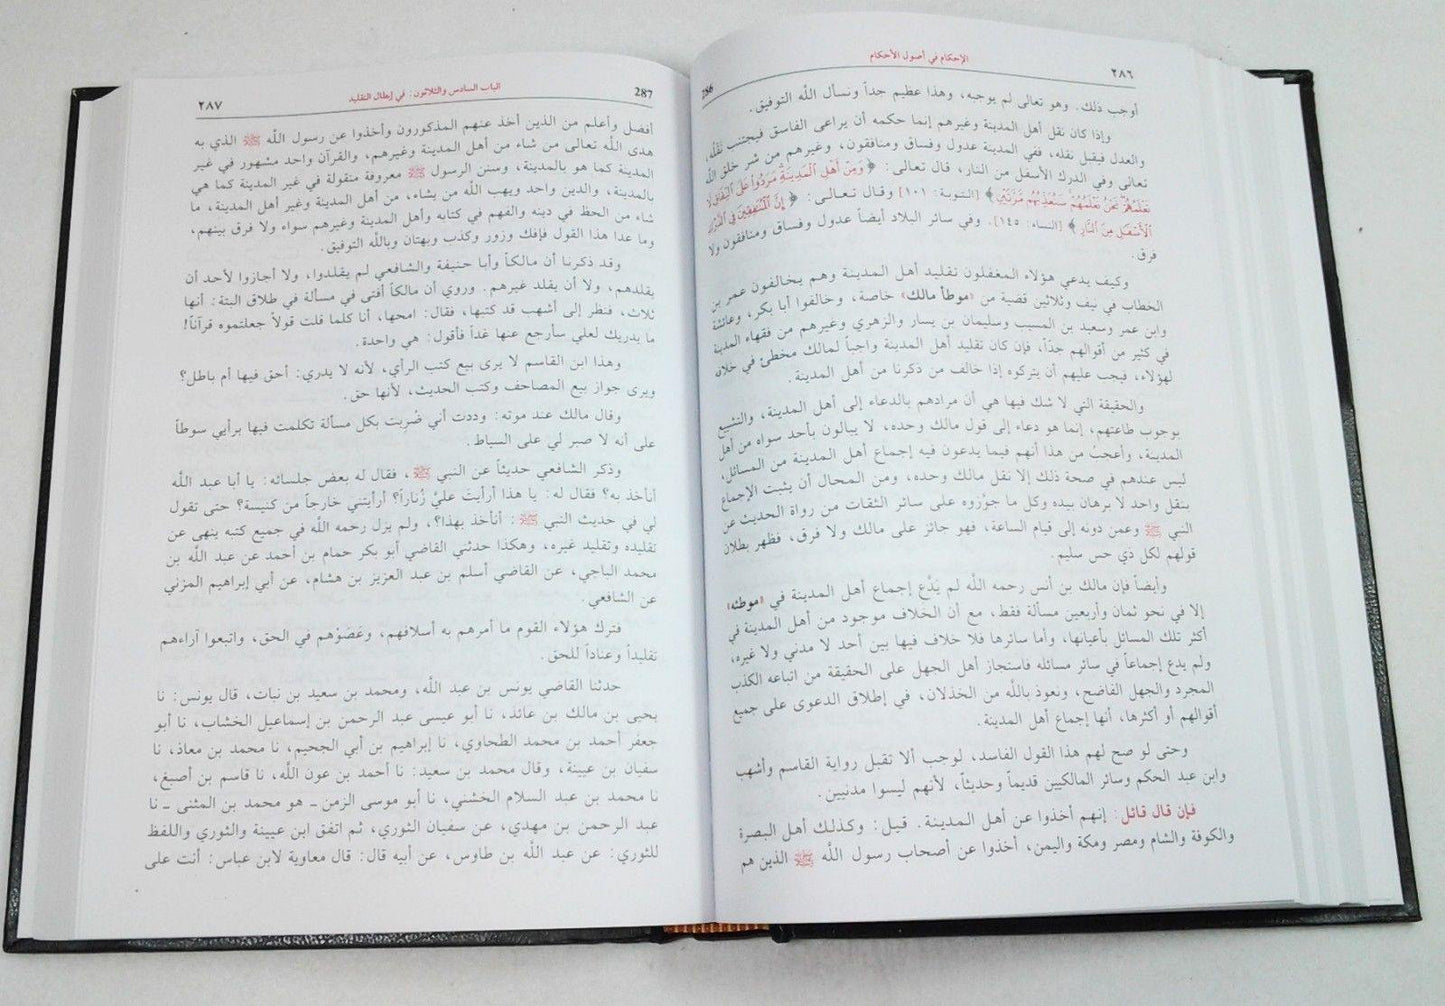 ٢٨٦
الإحكام في أصول الأحكام
286
أوجب ذلك. وهو تعالى لم يوجبه، وهذا عظيم جداً ونسأل الله التوفيق.
وإذا كان نقل أهل المدينة وغيرهم إنما حكمه أن يراعى الفاسق فيجتنب نقله،
والعدل فيقبل نقله، ففي المدينة عدول وفساق ومنافقون، وغيرهم من شر خلق الله
تعالى وفي الدرك الأسفل من النار، قال تعالى: ﴿وَمِنْ أَهْلِ ٱلْمَدِينَةِ مَرَدُوا۟ عَلَى ٱلنِّفَاقِ لَا
تَعْلَمُهُمْ نَحْنُ نَعْلَمُهُمْ سَنُعَذِّبُهُم مَّرَّتَيْنِ﴾ [التوبة: ١٠١] وقال تعالى: ﴿إِنَّ ٱلْمُنَٰفِقِينَ فِى ٱلدَّرْكِ
ٱلْأَسْفَلِ مِنَ ٱلنَّارِ﴾ [النساء: ١٤٥]. وفي سائر البلاد أيضاً عدول وفساق ومنافقون ولا
فرق.
وكيف يدعي هؤلاء المغفلون تقليد أهل المدينة وهم يخالفون عمر بن
الخطاب في نيف وثلاثين قضية من «موطأ مالك» خاصة، وخالفوا أبا بكر، وعائشة
وابن عمر وسعيد بن المسيب وسليمان بن يسار والزهري وغيرهم من فقهاء المدينة
في كثير من أقوالهم جدّاً، فإن كان تقليد أهل المدينة واجباً لمالك مخطئ في خلافه
لهؤلاء، فيجب عليهم أن يتركوه إذا خالف من ذكرنا من أهل المدينة.
والحقيقة التي لا شك فيها هي أن مرادهم بالدعاء إلى أهل المدينة، والتشيع
بوجوب طاعتهم، إنما هو دعاء إلى قول مالك وحده، لا يبالون بأحد سواه من أهل
المدينة، وأعجبُ من هذا أنهم فيما يدعون فيه إجماع أهل المدينة من المسائل،
ليس عندهم في صحة ذلك إلا نقل مالك وحده، ومن المحال أن يثبت الإجماع
بنقل واحد لا برهان بيده وكل ما جوّزوه على سائر الثقات من رواة الحديث عن
النبي ﷺ وعمن دونه إلى قيام الساعة، فهو جائز على مالك ولا فرق، فظهر بطلان
قولهم لكل ذي حس سليم.
وأيضاً فإن مالك بن أنس رحمه الله لم يَدَّع إجماع أهل المدينة في «موطئه»
إلا في نحو ثمان وأربعين مسألة فقط، مع أن الخلاف موجود من أهل المدينة في
أكثر تلك المسائل بأعيانها، وأما سائرها فلا خلاف فيها بين أحد لا مدني ولا غيره،
ولم يدع إجماعاً في سائر مسائله فاستجاز أهل الجهل على الحقيقة من اتباعه الكذب
المجرد والجهل الفاضح، ونعوذ بالله من الخذلان، في إطلاق الدعوى على جميع
أقوالهم أو أكثرها، أنها إجماع أهل المدينة.
وحتى لو صح لهم هذا القول الفاسد، لوجب ألا تقبل رواية القاسم وأشهب
وابن عبد الحكم وسائر المالكيين قديماً وحديثاً، لأنهم ليسوا مدنيين.
فإن قال قائل: إنهم أخذوا عن أهل المدينة. قيل: وكذلك أهل البصرة
والكوفة والشام ومصر ومكة واليمن، أخذوا عن أصحاب رسول الله ﷺ الذين هم
287
الباب السادس والثلاثون: في إبطال التقليد
٢٨٧
أفضل وأعلم من الذين أخذ عنهم المذكورون وأخذوا عن رسول الله ﷺ الذي به
هدى الله تعالى من شاء من أهل المدينة وغيرهم، والقرآن واحد مشهور في غير
المدينة كما هو بالمدينة، وسنن الرسول ﷺ معروفة منقولة في غير المدينة كما هي
بالمدينة، والدين واحد ويهب الله من يشاء، من أهل المدينة وغير أهل المدينة، ما
شاء من الحظ في دينه والفهم في كتابه وأهل المدينة وغيرهم سواء ولا فرق بينهم،
وما عدا هذا القول فإفك وزور وكذب وبهتان وبالله التوفيق.
وقد ذكرنا أن مالكاً وأبا حنيفة والشافعي لم يقلدوا، ولا أجازوا لأحد أن
يقلدهم، ولا أن يقلد غيرهم. وروي أن مالكاً أفتى في مسألة في طلاق البتة: أنها
ثلاث، فنظر إلى أشهب قد كتبها، فقال: امحها، أنا كلما قلت قولاً جعلتموه قرآناً!
ما يدريك لعلي سأرجع عنها غداً فأقول: هي واحدة.
وهذا ابن القاسم لا يرى بيع كتب الرأي، لأنه لا يدري: أحق فيها أم باطل؟
ويرى جواز بيع المصاحف وكتب الحديث، لأنها حق.
وقال مالك عند موته: وددت أني ضُربت بكل مسألة تكلمت فيها برأيي سوطاً
على أنه لا صبر لي على السياط.
وذكر الشافعي حديثاً عن النبي ﷺ، فقال له بعض جلسائه: يا أبا عبد الله
أتأخذ به؟ فقال له: يا هذا أرأيت عليَّ زُناراً؟ أرأيتني خارجاً من كنيسة؟ حتى تقول
لي في حديث النبي ﷺ: أتأخذ بهذا؟، ولم يزل رحمه الله في جميع كتبه ينهى عن
تقليده وتقليد غيره، وهكذا حدثني القاضي أبو بكر حمام بن أحمد عن عبد الله بن
محمد الباجي، عن القاضي أسلم بن عبد العزيز بن هشام، عن أبي إبراهيم المزني
عن الشافعي.
فترك هؤلاء القوم ما أمرهم به أسلافهم، وعَصَوْهم في الحق، واتبعوا آراءهم
تقليداً وعناداً للحق.
حدثنا القاضي يونس بن عبد الله، ومحمد بن سعيد بن نبات، قال يونس: نا
يحيى بن مالك بن عائذ، نا أبو عيسى عبد الرحمن بن إسماعيل الخشاب، نا أبو
جعفر أحمد بن محمد الطحاوي، نا إبراهيم بن أبي الجحيم، نا محمد بن معاذ، نا
سفيان بن عيينة، وقال محمد بن سعيد: نا أحمد بن عون الله، نا قاسم بن أصبغ،
نا محمد بن عبد السلام الخشني، نا أبو موسى الزمن ـ هو محمد بن المثنى ـ نا
عبد الرحمن بن مهدي، عن سفيان الثوري، ثم اتفق ابن عيينة والثوري واللفظ
للثوري: عن عبد الله بن طاوس، عن أبيه قال: قال معاوية لابن عباس: أنت على